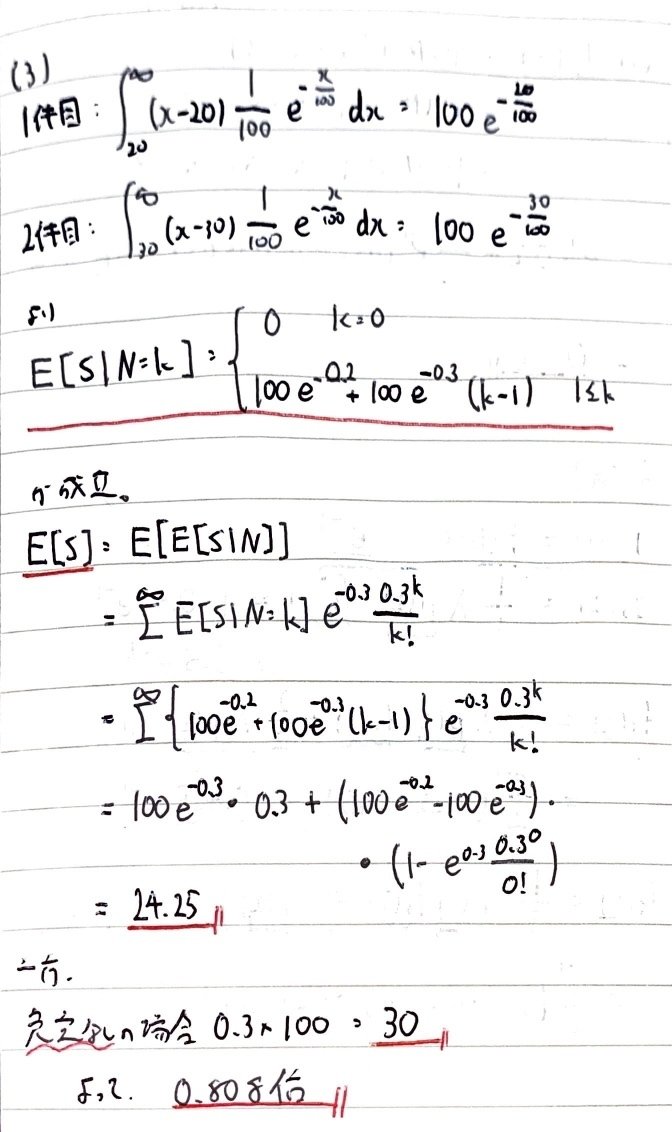 (3)
1件目: ∫_{20}^{∞} (x-20) \frac{1}{100} e^{-\frac{x}{100}} dx = 100 e^{-\frac{20}{100}}
2件目: ∫_{30}^{∞} (x-30) \frac{1}{100} e^{-\frac{x}{100}} dx = 100 e^{-\frac{30}{100}}
より
E[S|N=k] = { 0 k=0
100 e^{-0.2} + 100 e^{-0.3} (k-1) 1≤k
が成立。
E[S] = E[E[S|N]]
= Σ^{∞} E[S|N=k] e^{-0.3} \frac{0.3^k}{k!}
= Σ^{∞} {100e^{-0.2} + 100e^{-0.3} (k-1)} e^{-0.3} \frac{0.3^k}{k!}
= 100 e^{-0.3} · 0.3 + (100 e^{-0.2} - 100 e^{-0.3}) ·
· (1 - e^{0.3} \frac{0.3^0}{0!})
= 24.25
一方.
免責なしの場合 0.3×100 = 30
よって. 0.808倍